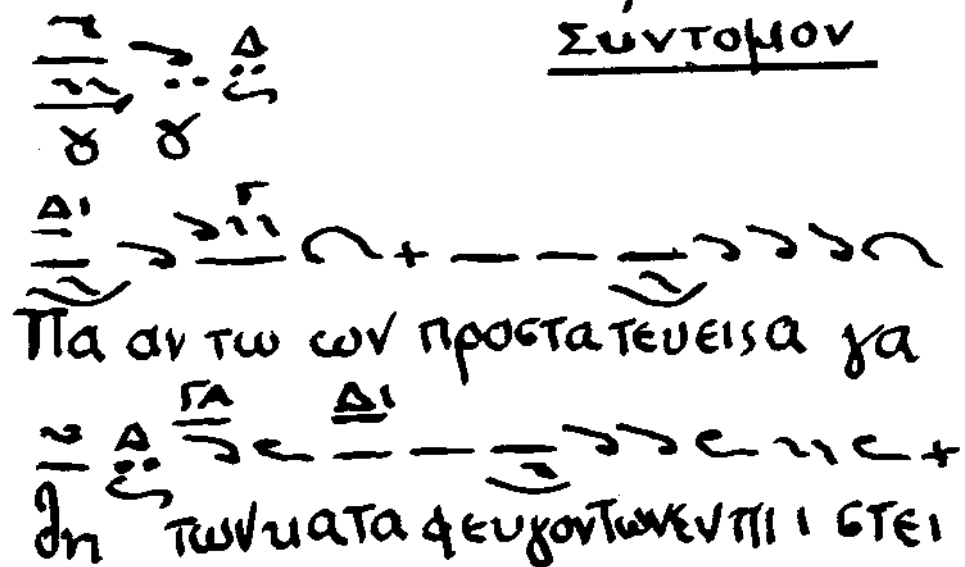 Σύντομον
Δ
Δι Γ
Πα αν τω ων προστατευεις α γα
Δ ΓΑ Δι
θη των κατα φευγοντων εν πι ι στει